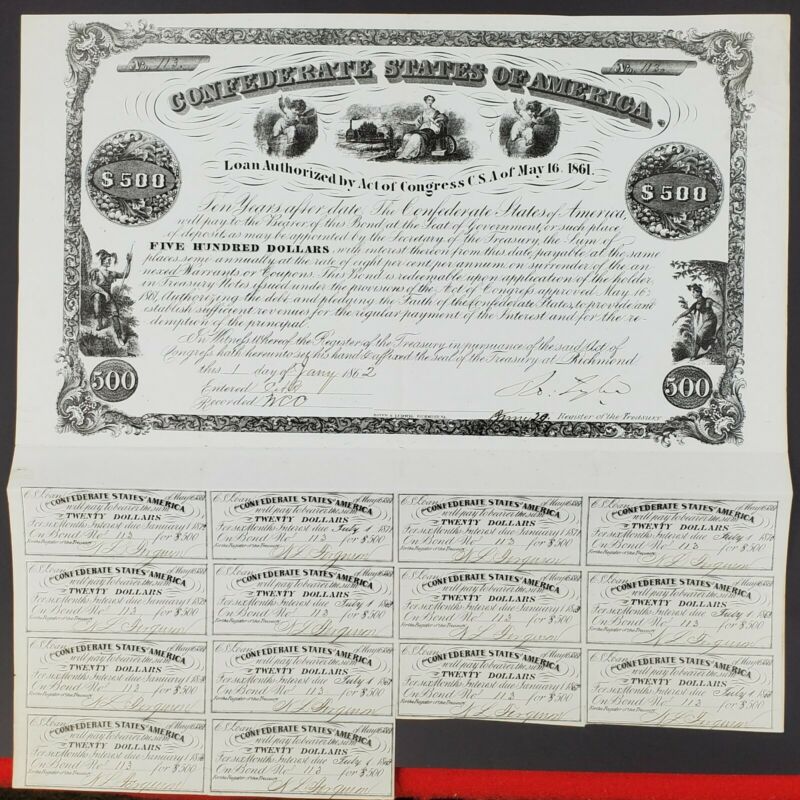 No. 113.
No. 113.
CONFEDERATE STATES OF AMERICA
Loan Authorized by Act of Congress C S A of May 16. 1861.
$500
$500
Ten Years after date, The Confederate States of America,
will pay to the Bearer of this Bond at the Seat of Government, or such place
of deposit, as may be appointed by the Secretary of the Treasury, the Sum of
FIVE HUNDRED DOLLARS, with interest thereon from this date, payable at the same
places, semi annually at the rate of eight per cent per annum on surrender of the an-
nexed Warrants or Coupons. This Bond is redeemable upon application of the holder,
in Treasury Notes issued under the provisions of the Act of Congress approved May 16;
1861, Authorizing the debt and pledging the Faith of the Confederate States, to provide and
establish sufficient revenues for the regular payment of the Interest and for the re-
demption of the principal.
In Witness Whereof the Register of the Treasury in pursuance of the said Act of
Congress hath hereunto set his hand & affixed the seal of the Treasury at Richmond
this 1 day of Jany 1862
500
500
Entered
Recorded WCO
Register of the Treasury
C.S. Loan of May 16 1861
CONFEDERATE STATES AMERICA
will pay to bearer the sum
TWENTY DOLLARS
For six Months Interest due January 1
On Bond No. 113 for $500
for the Register of the Treasury
C.S. Loan of May 16 1861
CONFEDERATE STATES AMERICA
will pay to bearer the sum
TWENTY DOLLARS
For six Months Interest due July 1 1871
On Bond No. 113 for $500
for the Register of the Treasury
C.S. Loan of May 16 1861
CONFEDERATE STATES AMERICA
will pay to bearer the sum
TWENTY DOLLARS
For six Months Interest due January 1 1871
On Bond No. 113 for $500
for the Register of the Treasury
C.S. Loan of May 16 1861
CONFEDERATE STATES AMERICA
will pay to bearer the sum
TWENTY DOLLARS
For six Months Interest due July 1 1870
On Bond No. 113 for $500
for the Register of the Treasury
C.S. Loan of May 16 1861
CONFEDERATE STATES AMERICA
will pay to bearer the sum
TWENTY DOLLARS
For six Months Interest due January 1 1870
On Bond No. 113 for $500
for the Register of the Treasury
C.S. Loan of May 16 1861
CONFEDERATE STATES AMERICA
will pay to bearer the sum
TWENTY DOLLARS
For six Months Interest due July 1 1869
On Bond No. 113 for $500
for the Register of the Treasury
C.S. Loan of May 16 1861
CONFEDERATE STATES AMERICA
will pay to bearer the sum
TWENTY DOLLARS
For six Months Interest due January 1 1869
On Bond No. 113 for $500
for the Register of the Treasury
C.S. Loan of May 16 1861
CONFEDERATE STATES AMERICA
will pay to bearer the sum
TWENTY DOLLARS
For six Months Interest due July 1
On Bond No. 113 for $500
for the Register of the Treasury
C.S. Loan of May 16 1861
CONFEDERATE STATES AMERICA
will pay to bearer the sum
TWENTY DOLLARS
For six Months Interest due January 1
On Bond No. 113 for $500
for the Register of the Treasury
C.S. Loan of May 16 1861
CONFEDERATE STATES AMERICA
will pay to bearer the sum
TWENTY DOLLARS
For six Months Interest due July 1
On Bond No. 113 for $500
for the Register of the Treasury
C.S. Loan of May 16 1861
CONFEDERATE STATES AMERICA
will pay to bearer the sum
TWENTY DOLLARS
For six Months Interest due January 1
On Bond No. 113 for $500
for the Register of the Treasury
C.S. Loan of May 16 1861
CONFEDERATE STATES AMERICA
will pay to bearer the sum
TWENTY DOLLARS
For six Months Interest due July 1
On Bond No. 113 for $500
for the Register of the Treasury
C.S. Loan of May 16 1861
CONFEDERATE STATES AMERICA
will pay to bearer the sum
TWENTY DOLLARS
For six Months Interest due January 1
On Bond No. 113 for $500
for the Register of the Treasury
C.S. Loan of May 16 1861
CONFEDERATE STATES AMERICA
will pay to bearer the sum
TWENTY DOLLARS
For six Months Interest due July 1
On Bond No. 113 for $500
for the Register of the Treasury